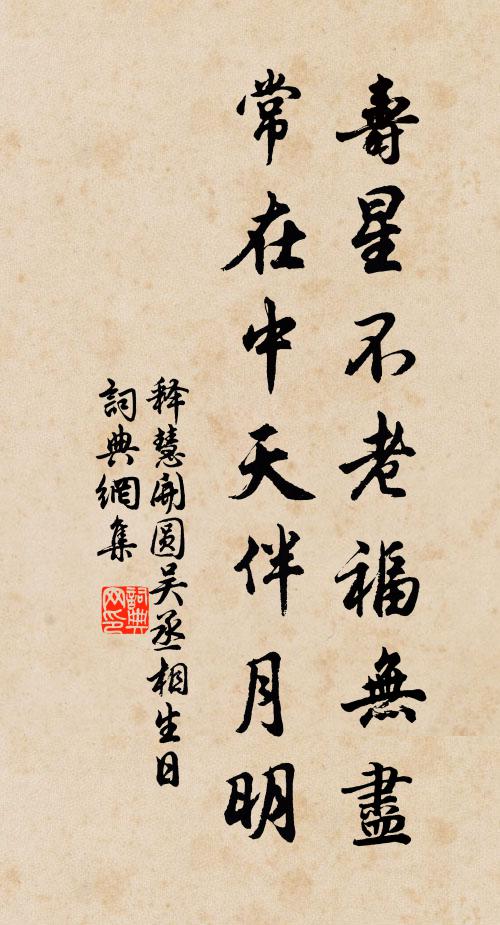 壽星不老福無盡
常在中天伴月明
释慧開圓吴丞相生日
詞典網集
詞典網印